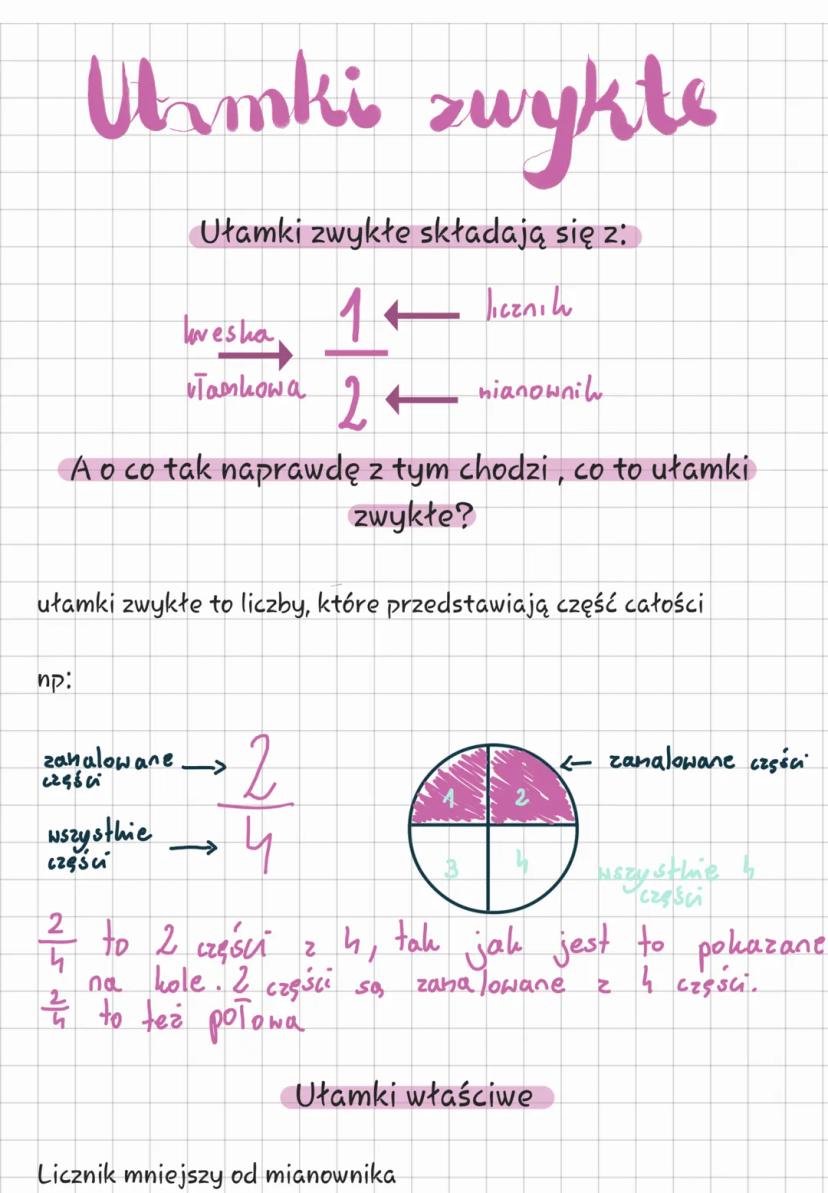 Ułamki zwykłe
Ułamki zwykłe składają się z:
1
licznik
kreska
ułamkowa
2
mianownik
A o co tak naprawdę z tym chodzi , co to ułamki
zwykłe?
ułamki zwykłe to liczby, które przedstawiają część całości
np:
zamalowane
części
2
4
wszystkie
części
zamalowane części
1 2
3 4
wszystkie 4
części
2/4 to 2 części z 4, tak jak jest to pokazane
na kole. 2 części są zamalowane z 4 części.
2/4 to też połowa
Ułamki właściwe
Licznik mniejszy od mianownika